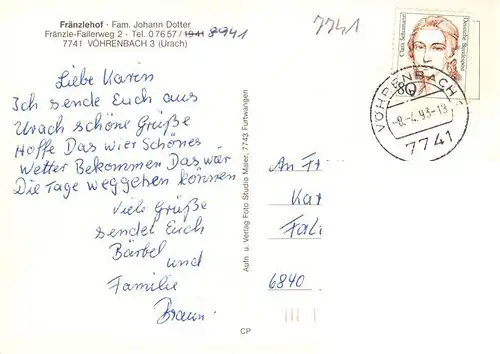 Fränzlehof · Fam. Johann Dotter
Fränzle-Fallerweg 2 · Tel. 0 76 57 / 1941 8941
7741 VÖHRENBACH 3 (Urach)
7741
Liebe Karin
Ich sende Euch aus
Urach schöne Grüße
Hoffe Das wir Schönes
Wetter Bekommen Das wir
Die Tage weggehen können
Viele Grüße
sendet Euch
Bärbel
und
Familie
Braun.
Aufn. u. Verlag Foto Studio Maier, 7743 Furtwangen
CP
Clara Schumann
Deutsche Bundespost
80
VÖHRENBACH 1
-8.-4.93-18
7741
An F
Kar
Fal
6840